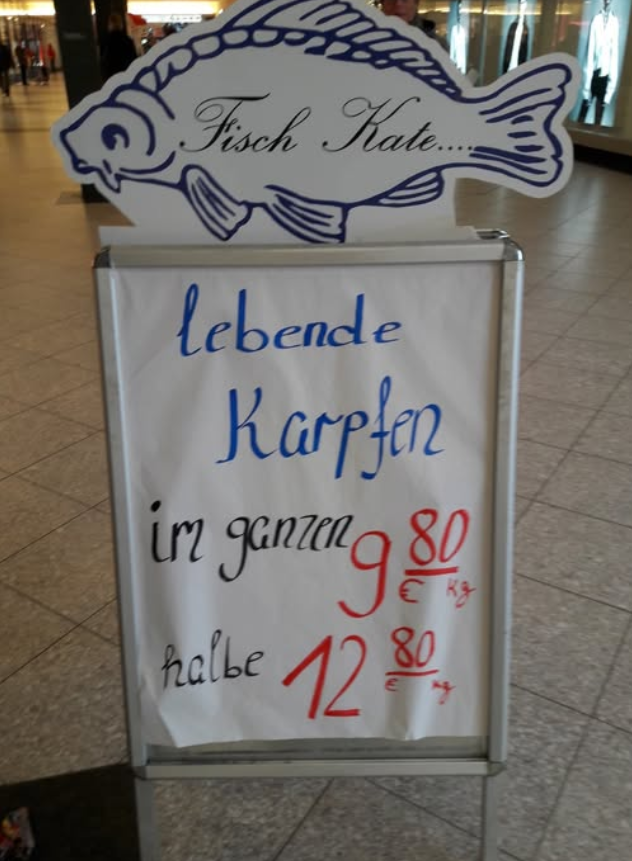 Fisch Kate....
lebende
Karpfen
im ganzen 9 80
€ kg
halbe 12 80
€ kg